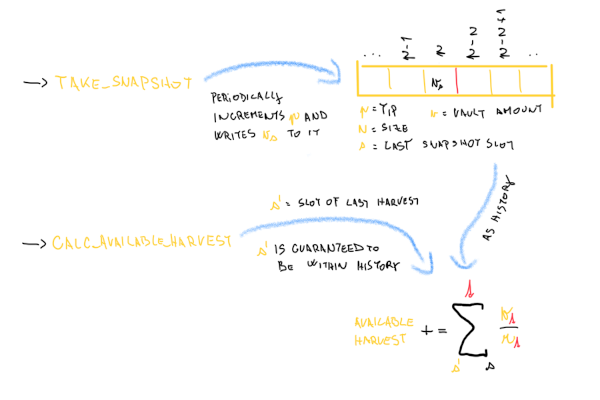 → TAKE_SNAPSHOT
PERIODICALLY
INCREMENTS AND
WRITES TO IT
... ..
= TIP = VAULT AMOUNT
N = SIZE
s = LAST SNAPSHOT SLOT
AS HISTORY
s' = SLOT OF LAST HARVEST
→ CALC_AVAILABLE_HARVEST
s' IS GUARANTEED TO
BE WITHIN HISTORY
AVAILABLE
HARVEST += Σ
s' s